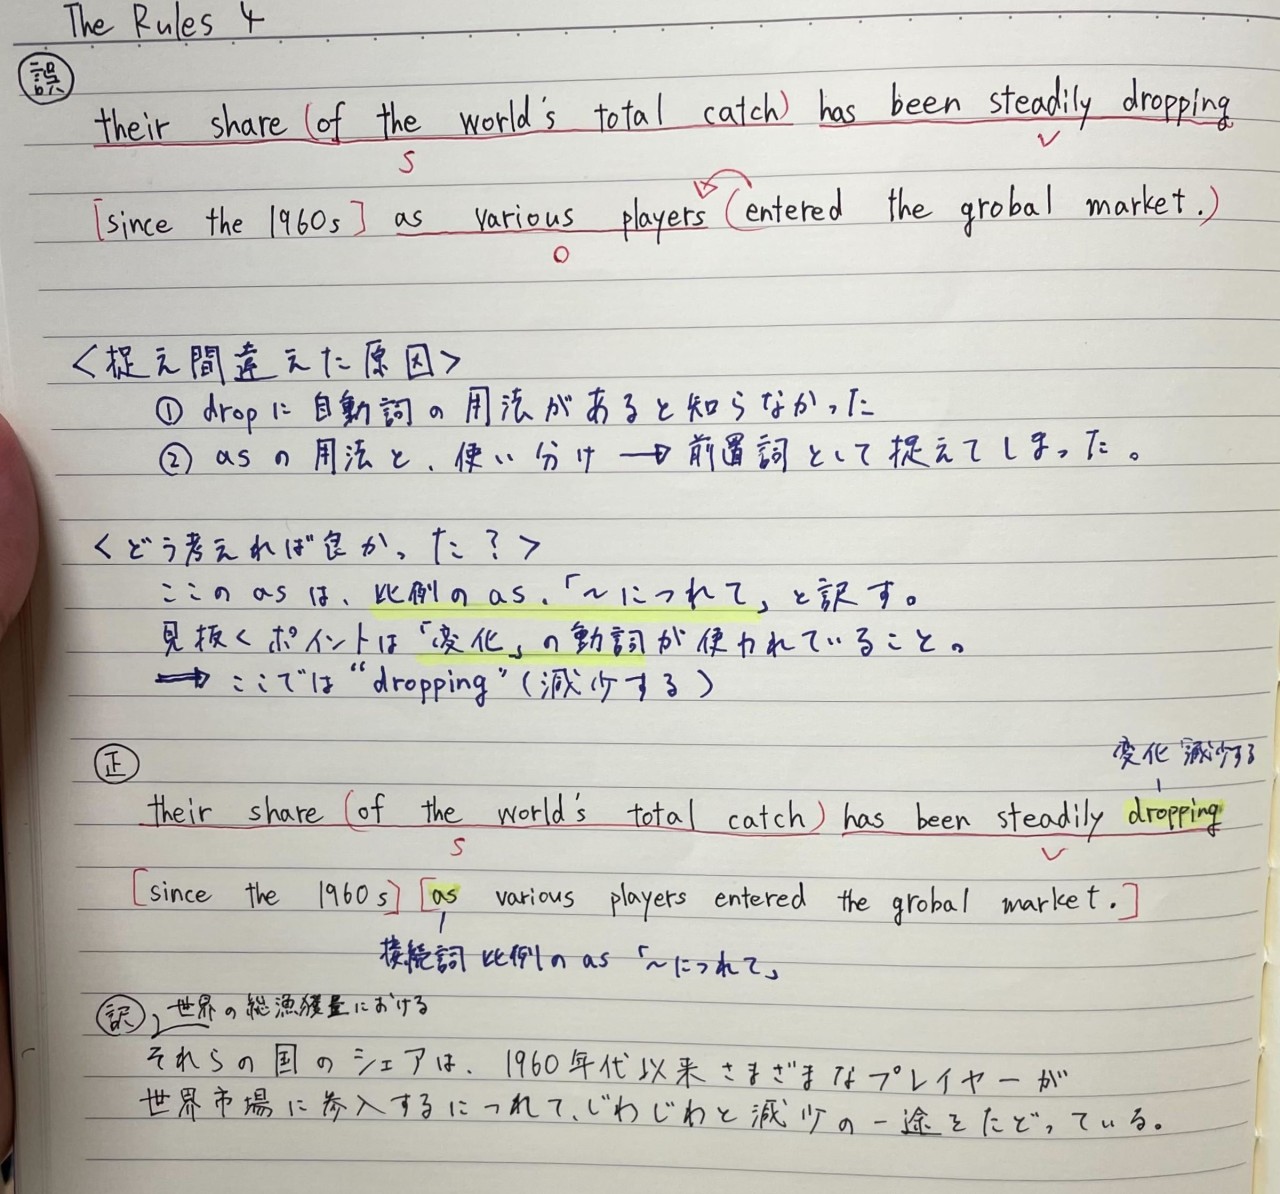 The Rules 4
誤
their share (of the world's total catch) has been steadily dropping
S
V
[since the 1960s] as various players (entered the grobal market.)
O
<捉え間違えた原因>
① dropに自動詞の用法があると知らなかった
② asの用法と、使い分け → 前置詞として捉えてしまった。
<どう考えれば良かった?>
ここのasは、比例のas.「〜につれて」と訳す。
見抜くポイントは「変化」の動詞が使われていること。
→ ここでは"dropping"(減少する)
正
変化 減少する
their share (of the world's total catch) has been steadily dropping
S
V
[since the 1960s] [as various players entered the grobal market.]
接続詞 比例のas 「〜につれて」
訳
世界の総漁獲量における
それらの国のシェアは、1960年代以来さまざまなプレイヤーが
世界市場に参入するにつれて、じわじわと減少の一途をたどっている。